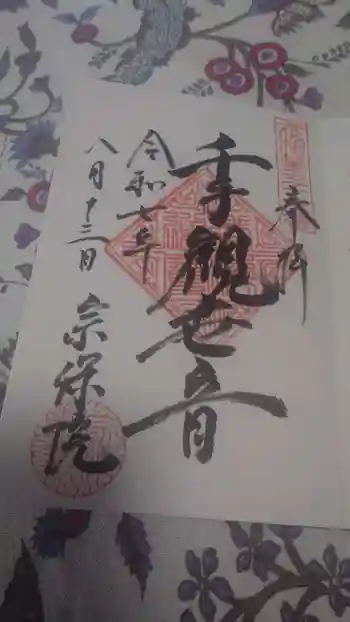 奉拝
千手観世音
令和七年
八月十三日
宗保院